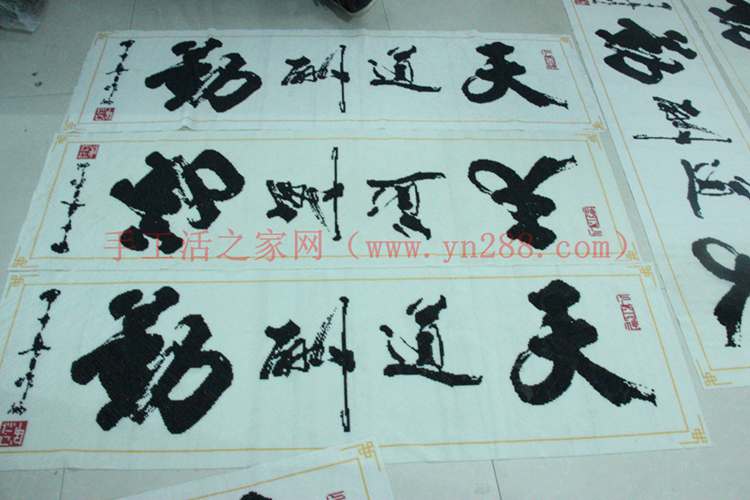 天道酬勤
天道酬勤
天道酬勤
天道酬勤
手工活之家网（www.yn288.com）